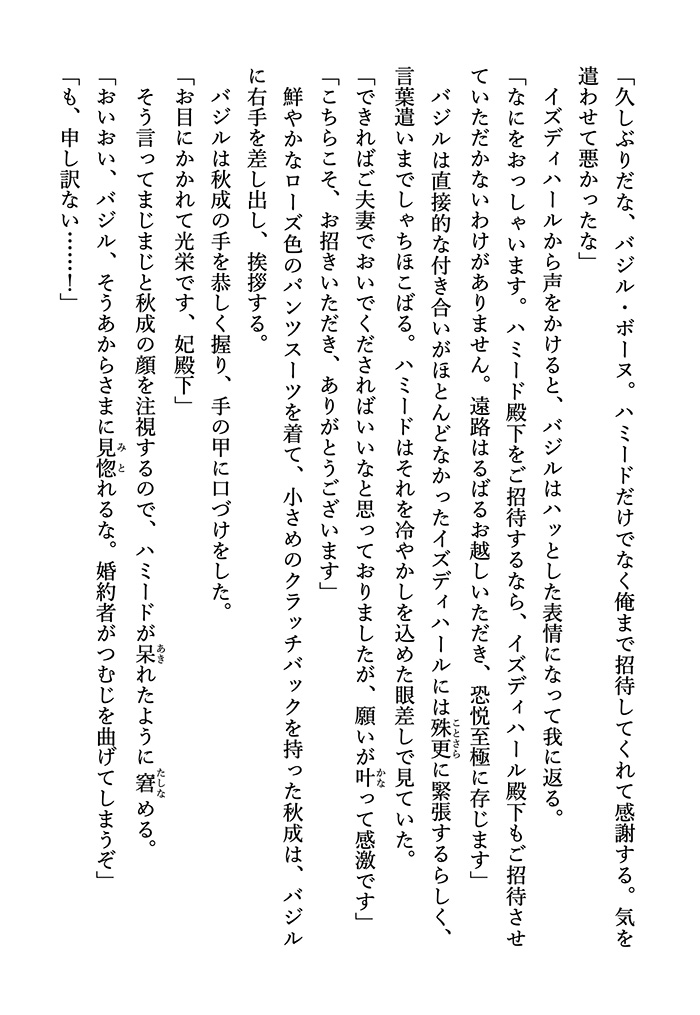 「久しぶりだな、バジル・ボーヌ。ハミードだけでなく俺まで招待してくれて感謝する。気を
遣わせて悪かったな」
イズディハールから声をかけると、バジルはハッとした表情になって我に返る。
「なにをおっしゃいます。ハミード殿下をご招待するなら、イズディハール殿下もご招待させ
ていただかないわけがありません。遠路はるばるお越しいただき、恐悦至極に存じます」
バジルは直接的な付き合いがほとんどなかったイズディハールには殊更に緊張するらしく、
言葉遣いまでしゃちほこばる。ハミードはそれを冷やかしを込めた眼差しで見ていた。
「できればご夫妻でおいでくださればいいなと思っておりましたが、願いが叶って感激です」
「こちらこそ、お招きいただき、ありがとうございます」
鮮やかなローズ色のパンツスーツを着て、小さめのクラッチバックを持った秋成は、バジル
に右手を差し出し、挨拶する。
バジルは秋成の手を恭しく握り、手の甲に口づけをした。
「お目にかかれて光栄です、妃殿下」
そう言ってまじまじと秋成の顔を注視するので、ハミードが呆れたように窘める。
「おいおい、バジル、そうあからさまに見惚れるな。婚約者がつむじを曲げてしまうぞ」
「も、申し訳ない……！」